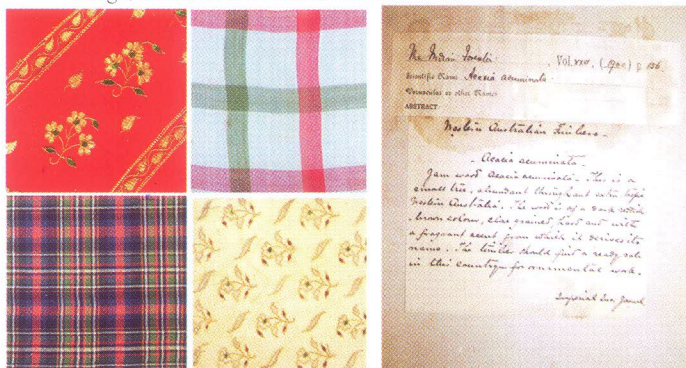 The Indian Forester, Vol. XXVI, (1900) p. 136.
Scientific Name Acacia acuminata
Vernacular or other Names
ABSTRACT
Western Australian Timbers.
- Acacia acuminata -
Jam wood Acacia acuminata. This is a
small tree, abundant throughout extra tropic
Western Australia. The wood is of a dark reddish
brown colour, close grained hard and with
a fragrant scent from which it derives its
name. The timber should find a ready sale
in this country for ornamental work.
Imperial Inst. Journal